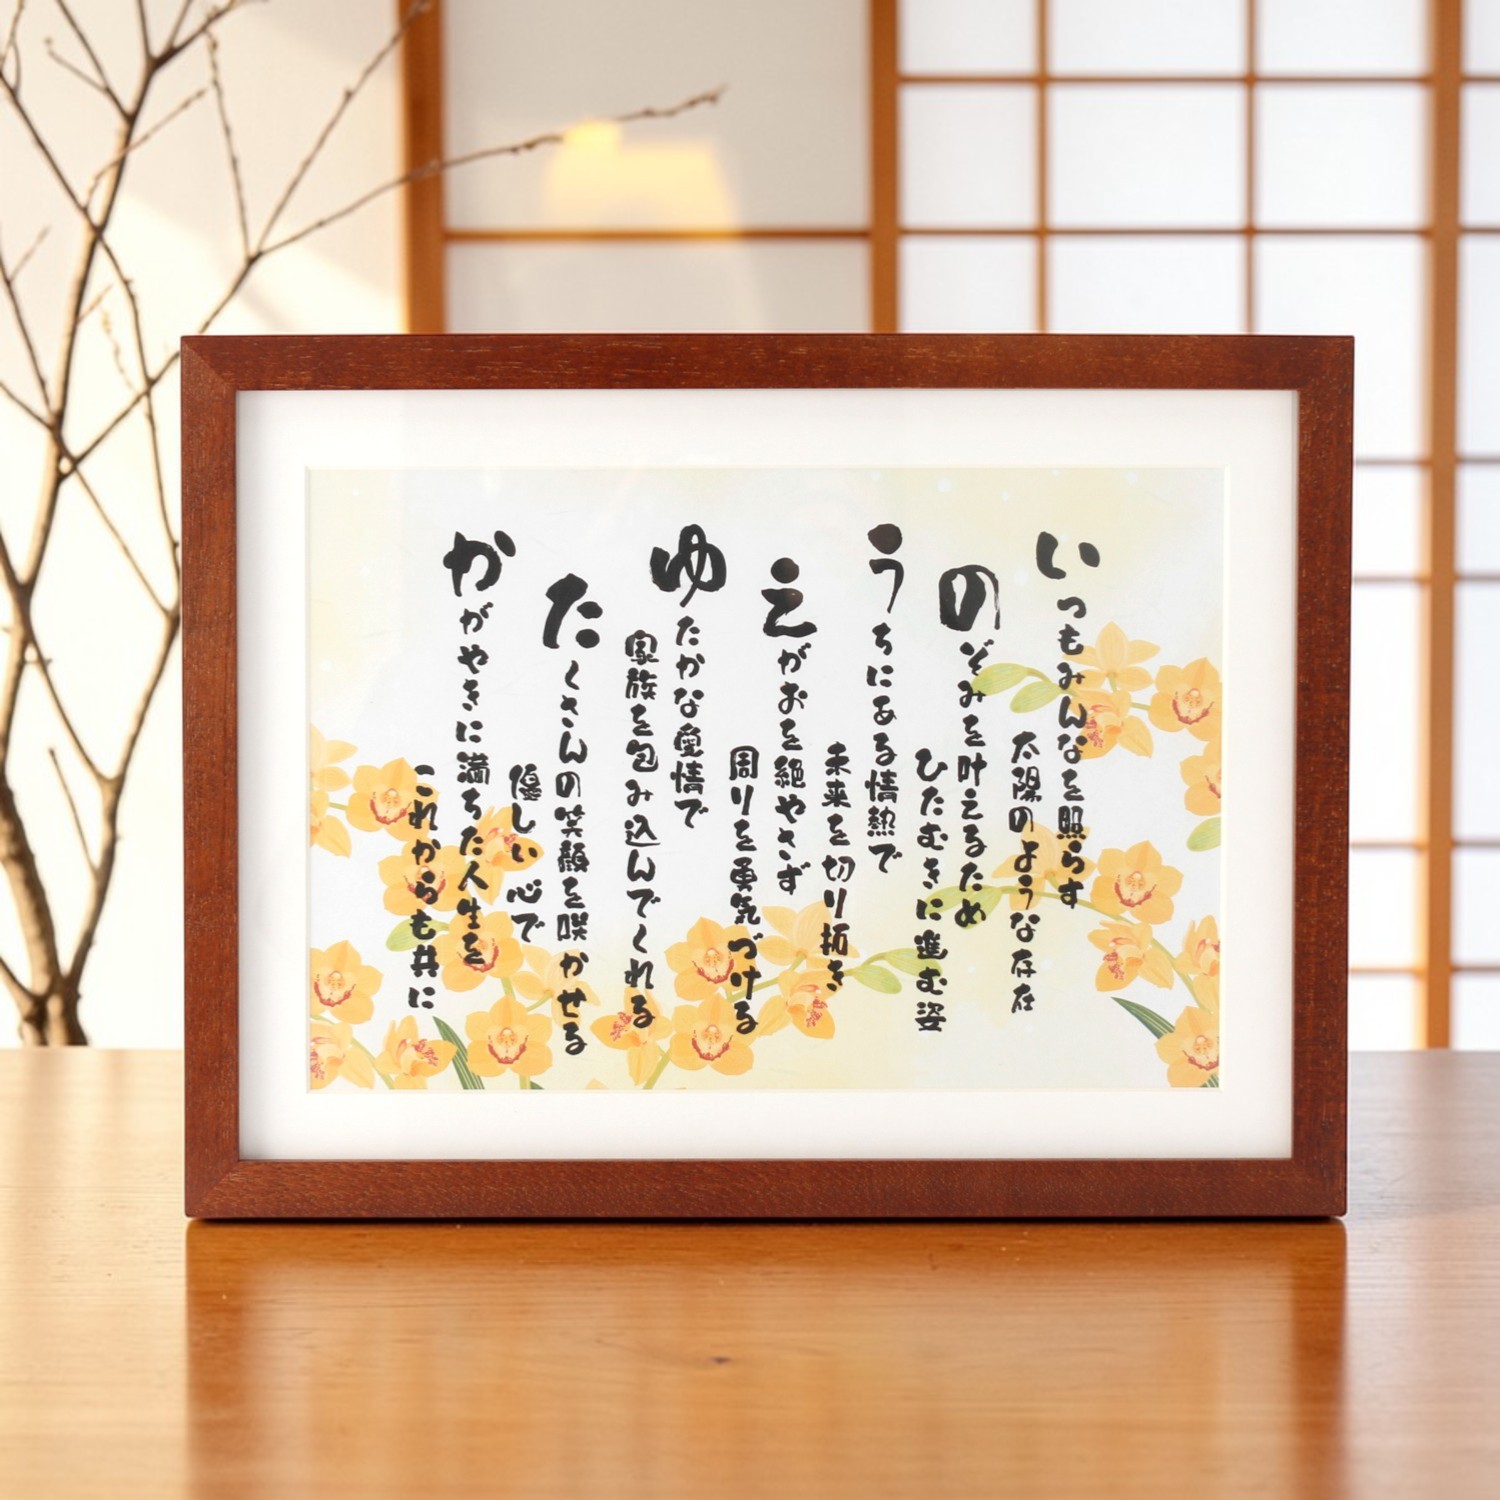 いつもみんなを照らす
太陽のような存在
のぞみを叶えるため
ひたむきに進む姿
うちにある情熱で
未来を切り拓き
えがおを絶やさず
周りを勇気づける
ゆたかな愛情で
家族を包み込んでくれる
たくさんの笑顔を咲かせる
優しい心で
かがやきに満ちた人生を
これからも共に